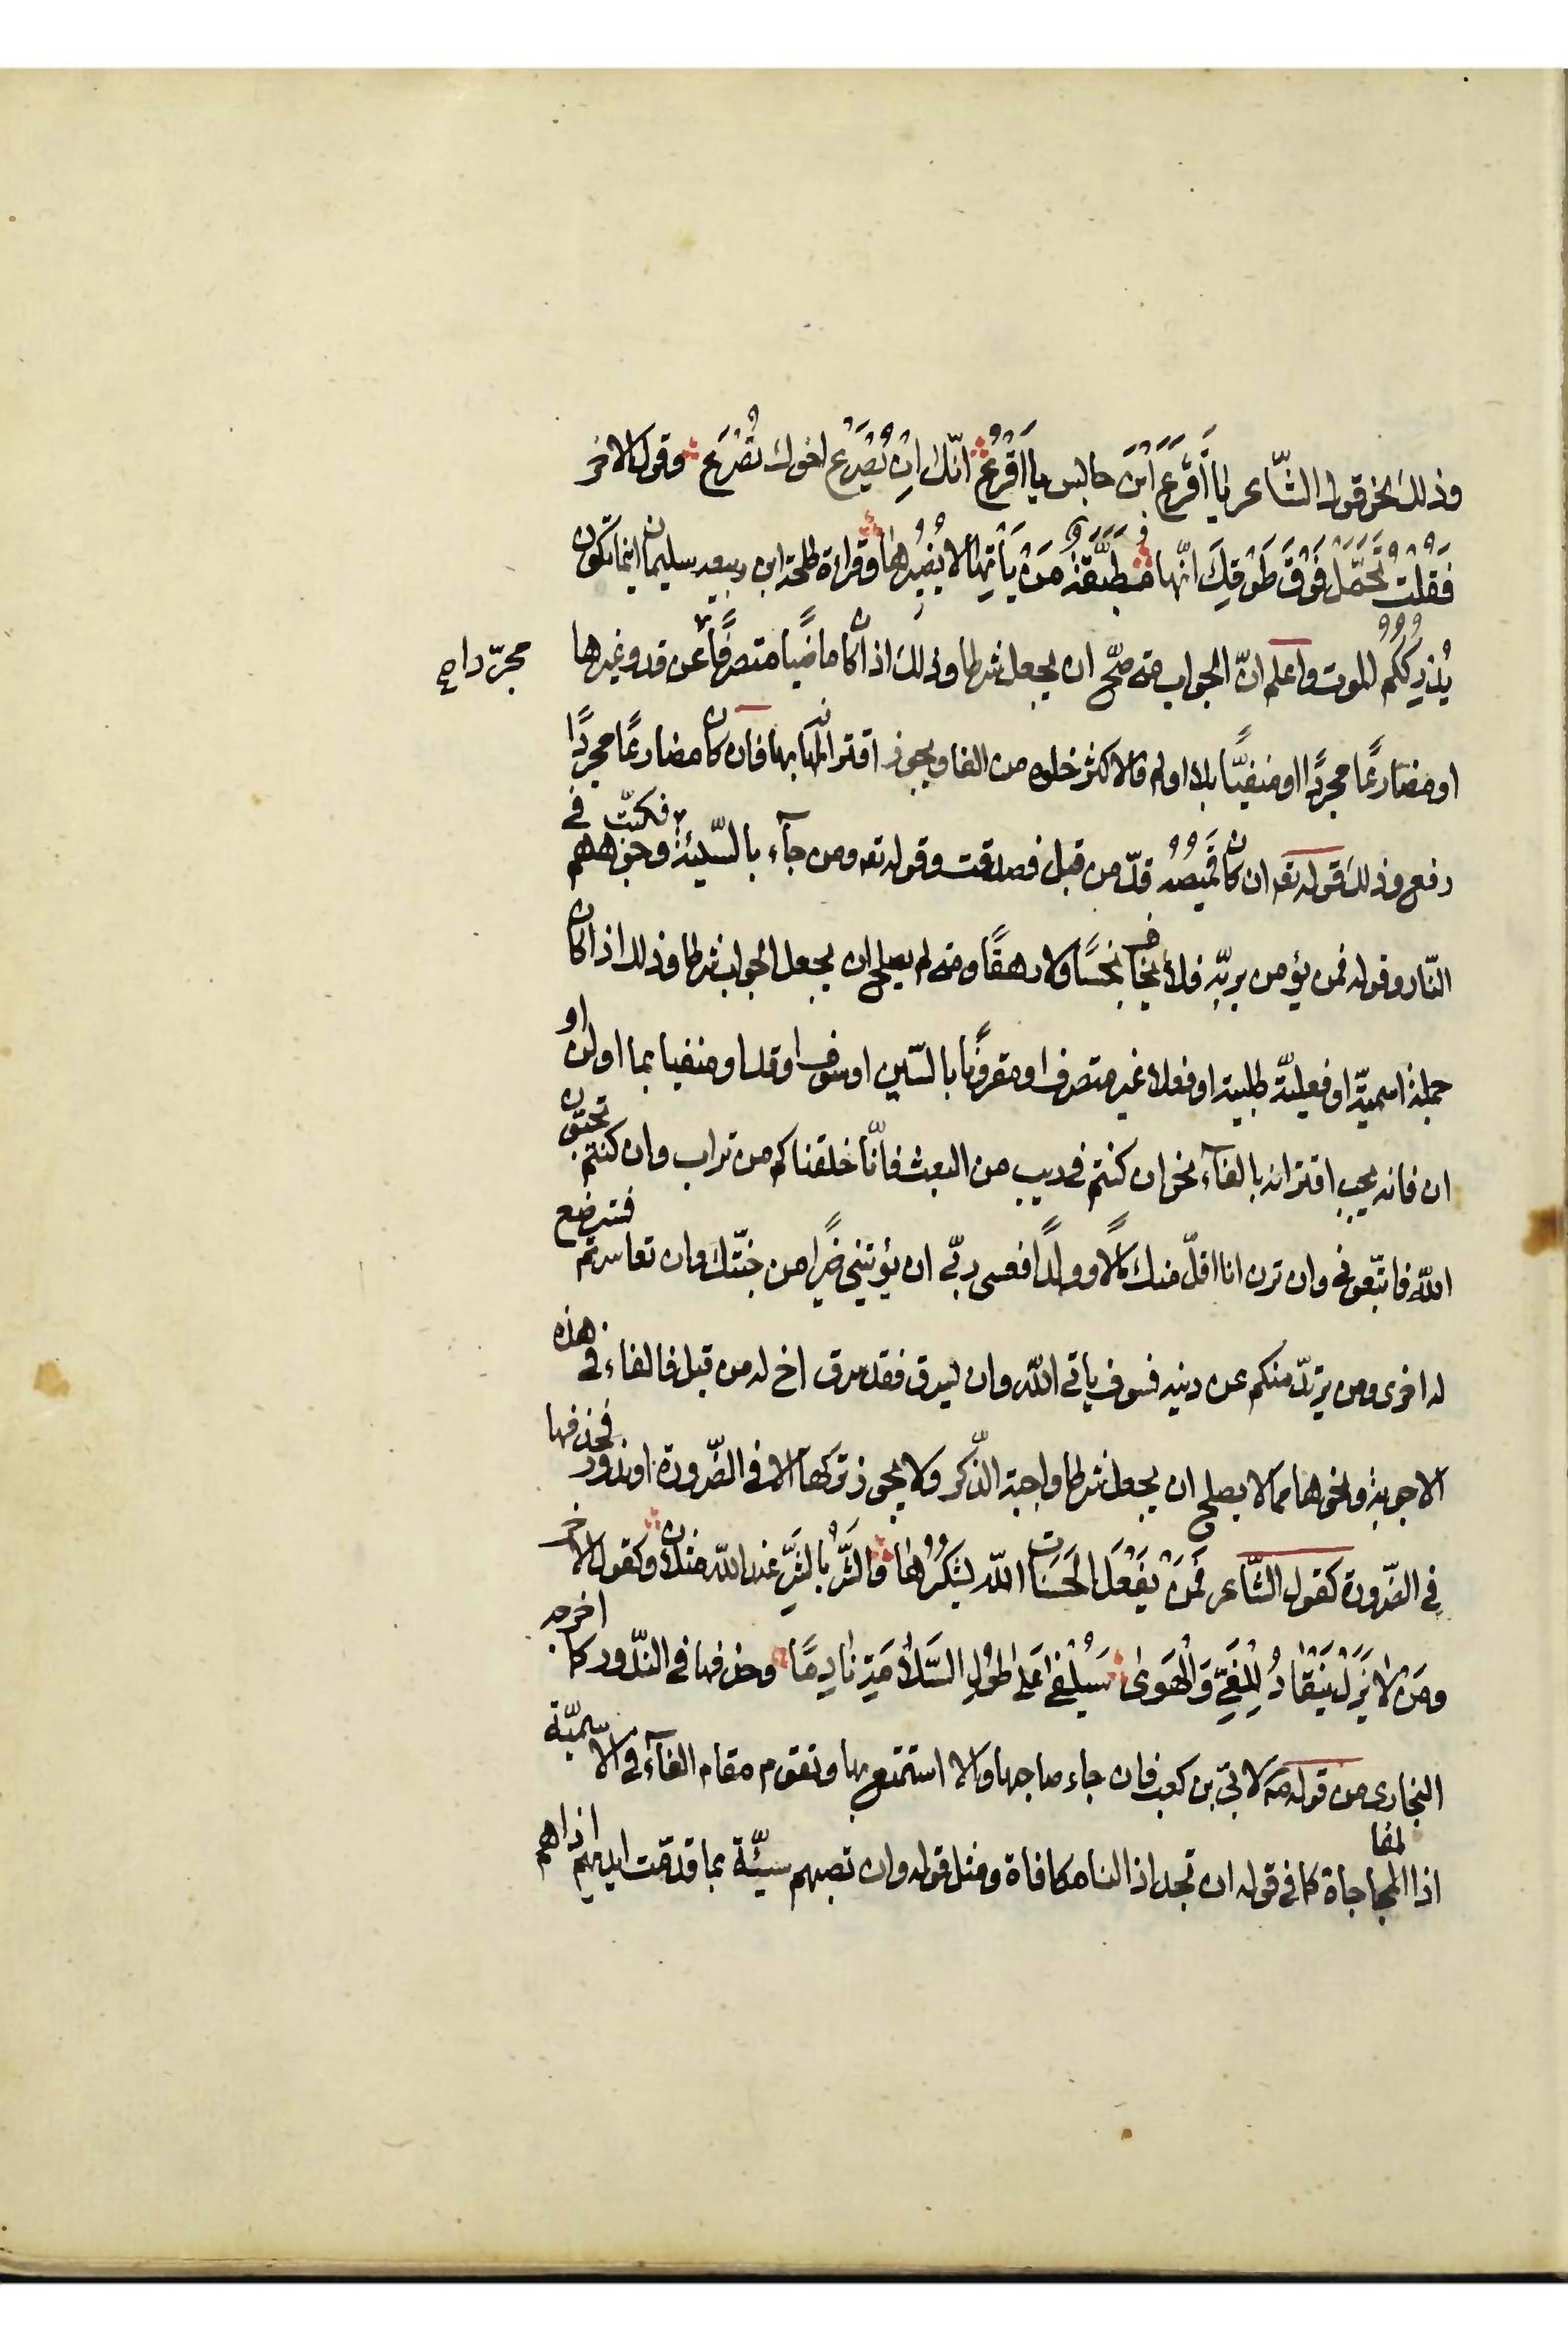 وذلك نحو قول الشّاعر يا اَقْرَعَ ابْنَ حابس يا اَقْرَعُ انّك اِنْ يُصْرَعْ اخوك تُصْرَعُ وقول الاخر
فَقُلتُ تَحَمَّلْ فَوْقَ طَوْقِكَ انّها مُطَبَّعَةٌ مَنْ يَأتِها لا يُضِيرُها وقراءة طلحة ابن سليمان اينما تكون
يُدرِكُكُم الموت واعلم انّ الجواب متى صحّ ان يجعل شرطا وذلك اذا كان ماضيًا متصرفًا عن قد وغيرها
مجرّدا صح
او مضارعًا مجردًا او منفيًّا بلا او لم فالاكثر خلوه من الفا ويجوز اقترانه بها فان كان مضارعًا مجردًا
رفع وذلك قوله تعه ان كان قَميصُهُ قدّ من قبل فصدقت وقوله تعه ومن جآء بالسّيئة فكبّت وجوههم في
النّار وقوله فمن يؤمن بربّه فلا يخاف بخسًا ولا رهقًا ومتى لم يصلح ان يجعل الجواب شرطا وذلك اذا كان
جملة اسميّة او فعليّة طلبية او فعلا غير متصرف او مقرونًا بالسّين او سوف او قد او منفيا بما او لن او
ان فانه يجب اقترانه بالفآء نحو ان كنتم في ريب من البعث فانّا خلقناكم من تراب وان كنتم تحبّون
اللّه فاتّبعوني وان ترن انا اقلّ منك مالًا وولدًا فعسى ربّي ان يؤتيني خيرًا من جنّتك وان تعاسرتم فسترضع
له اخرى ومن يرتدّ منكم عن دينه فسوف ياتي اللّه وان يسرق فقد سرق اخ له من قبل فالفاء في هذه
الاجوبة ونحوها مما لا يصلح ان يجعل شرطا واجبة الذّكر ولا يجوز تركها الا في الضّرورة او ندور فحذفها
في الضّرورة كقول الشّاعر فَمَنْ يَفْعَلِ الحَسَنات اللّه يَشكُرُها والشَّرُّ بالشَّرِّ عند اللّه مثلان وكقول الاخر
ومَنْ لا يَزَلْ يَنْقادُ لِلغَيِّ وَالْهَوىٰ سَيُلْفىٰ عَلىٰ طُوْلِ السَّلامَةِ نادِمًا وحذفها في النّدور كما اخرجه
البخارى من قوله صه لابيّ بن كعب فان جاء صاحبها والا استمتع بها وتقوم مقام الفآء في الاسميّة
اذا المفاجاة كما في قوله ان تجد اذا لنا مكافاة ومثل قوله وان تصبهم سيّئة بما قدّمت ايديهم اذا هم